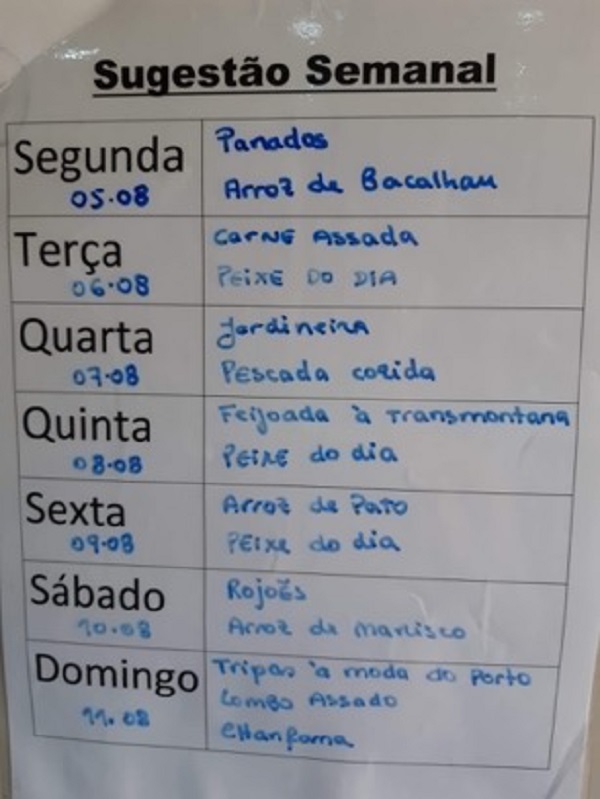 Sugestão Semanal
Segunda
05.08
Panados
Arroz de Bacalhau
Terça
06.08
Carne Assada
Peixe do dia
Quarta
07.08
Jardineira
Pescada cozida
Quinta
08.08
Feijoada à Transmontana
Peixe do dia
Sexta
09.08
Arroz de Pato
Peixe do dia
Sábado
10.08
Rojões
Arroz de Marisco
Domingo
11.08
Tripas à moda do Porto
Lombo Assado
Chanfana